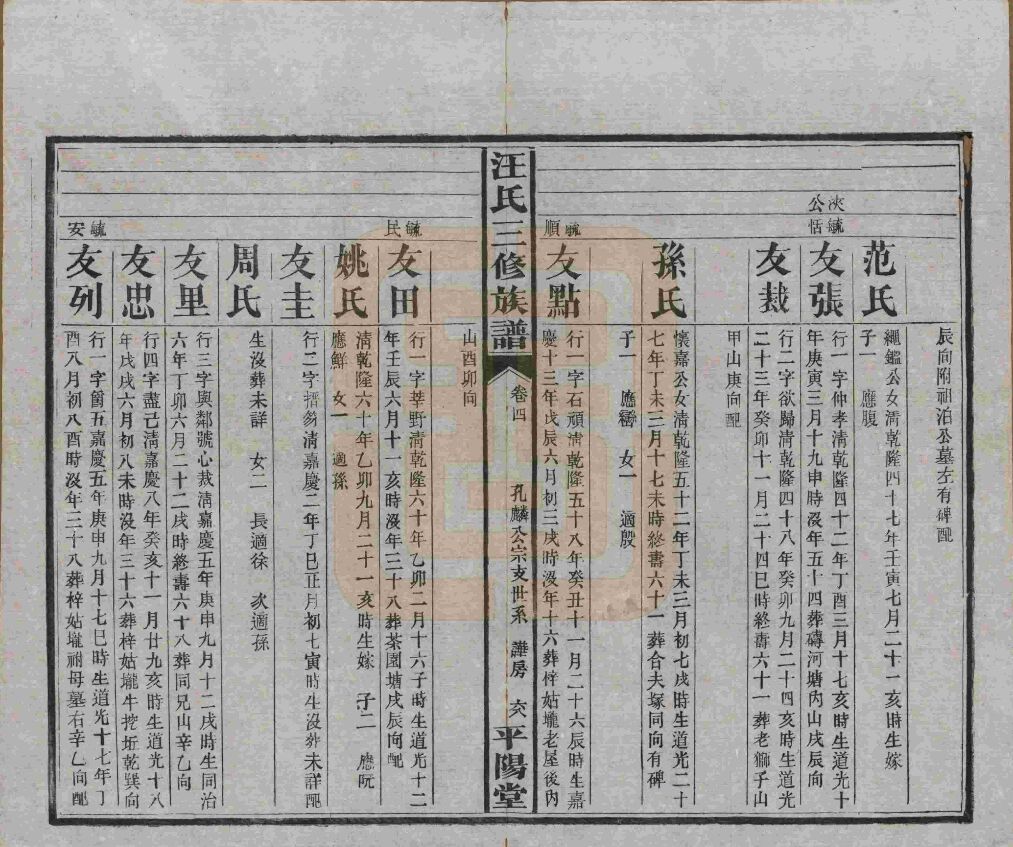 辰向附祖泊公墓左有碑配
范氏
繩鑑公女清乾隆四十七年壬寅七月二十一亥時生嫁
子一 應腹
浹公
毓恬
友張
行一字仲孝清乾隆四十二年丁酉三月十七亥時生道光十
年庚寅三月十九申時沒年五十四葬磚河塘內山戌辰向
友裁
行二字欲歸清乾隆四十八年癸卯九月二十四亥時生道光
二十三年癸卯十一月二十四巳時終壽六十一葬老獅子山
甲山庚向配
孫氏
懷嘉公女清乾隆五十二年丁未三月初七戌時生道光二十
七年丁未三月十七未時終壽六十一葬合夫塚同向有碑
子一 應巒 女一 適殷
毓順
友點
行一字石頑清乾隆五十八年癸丑十一月二十六辰時生嘉
慶十三年戊辰六月初三戌時沒年十六葬梓姑壠老屋後內
汪氏三修族譜 卷四 孔麟公宗支世系 譁房 平陽堂
山酉卯向
毓民
友田
行一字莘野清乾隆六十年乙卯二月十六子時生道光十二
年壬辰六月十一亥時沒年三十八葬茶園塘戌辰向配
姚氏
清乾隆六十年乙卯九月二十一亥時生嫁 子二 應阮
應鮮 女一 適孫
友圭
行二字搢芴清嘉慶二年丁巳正月初七寅時生沒葬未詳配
周氏
生沒葬未詳 女二 長適徐 次適孫
友里
行三字與鄰號心裁清嘉慶五年庚申九月十二戌時生同治
六年丁卯六月二十二戌時終壽六十八葬同兄山辛乙向
友忠
行四字盡己清嘉慶八年癸亥十一月廿九亥時生道光十八
年戊戌六月初八未時沒年三十六葬梓姑壠牛挖坵乾巽向
毓安
友列
行一字爵五嘉慶五年庚申九月十七巳時生道光十七年丁
酉八月初八酉時沒年三十八葬梓姑壠祔母墓右辛乙向配